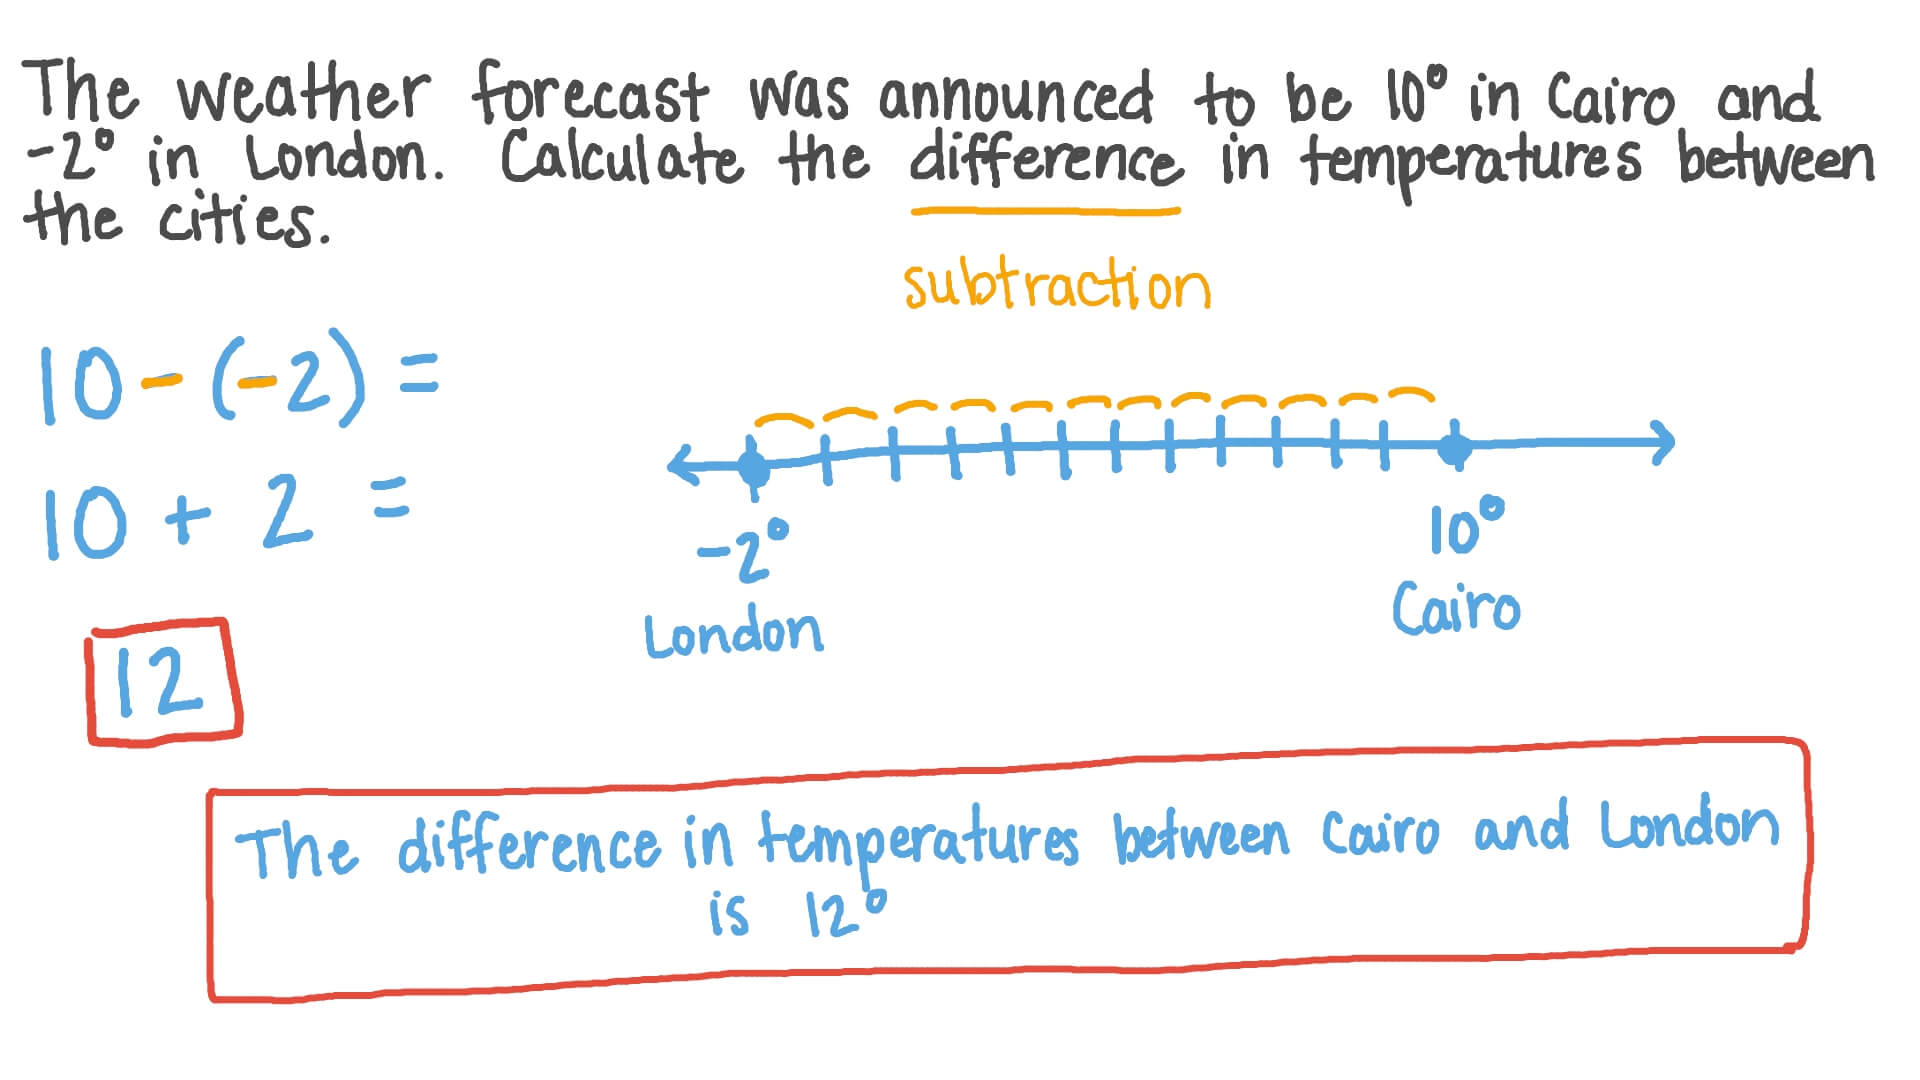 The weather forecast was announced to be 10° in Cairo and
-2° in London. Calculate the difference in temperatures between
the cities.
subtraction
10 - (-2) =
10 + 2 =
12
-2°
London
10°
Cairo
The difference in temperatures between Cairo and London
is 12°